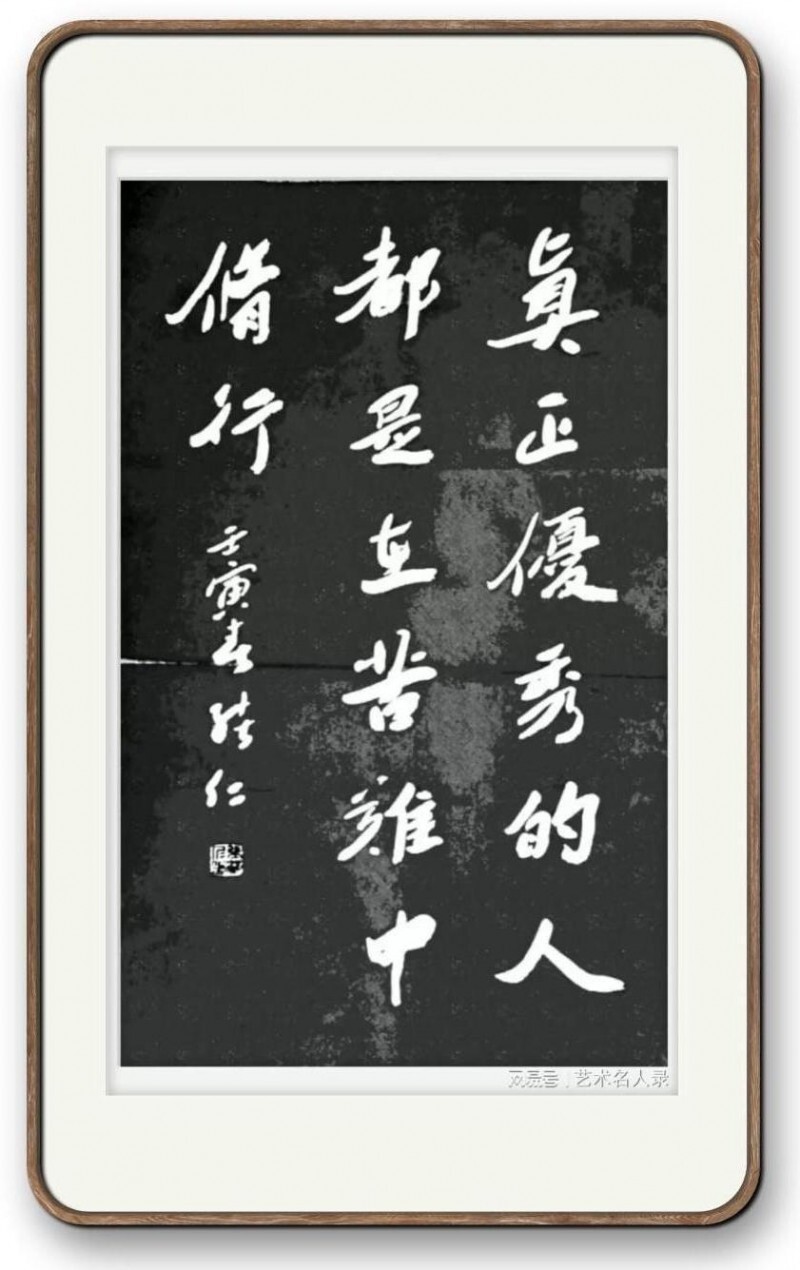 真正優秀的人
都是在苦難中
脩行 壬寅春 仁
艺术名人录